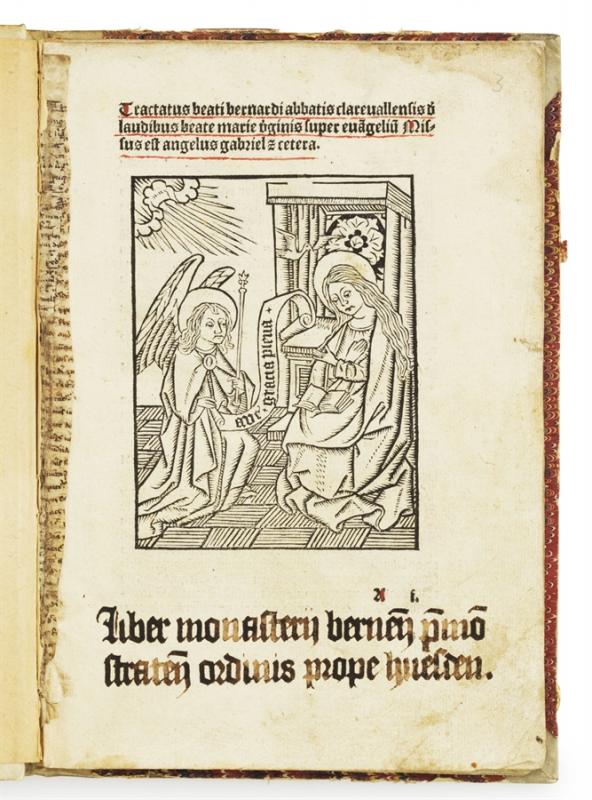 Tractatus beati bernardi abbatis clareuallensis đ
laudibus beate marie v̄ginis super euāgeliū Mis-
sus est angelus gabriel ⁊ cetera.
aue gracia plena
A f.
Liber monasterij berneñ p̄mō
strateñ ordinis prope huesden.
3